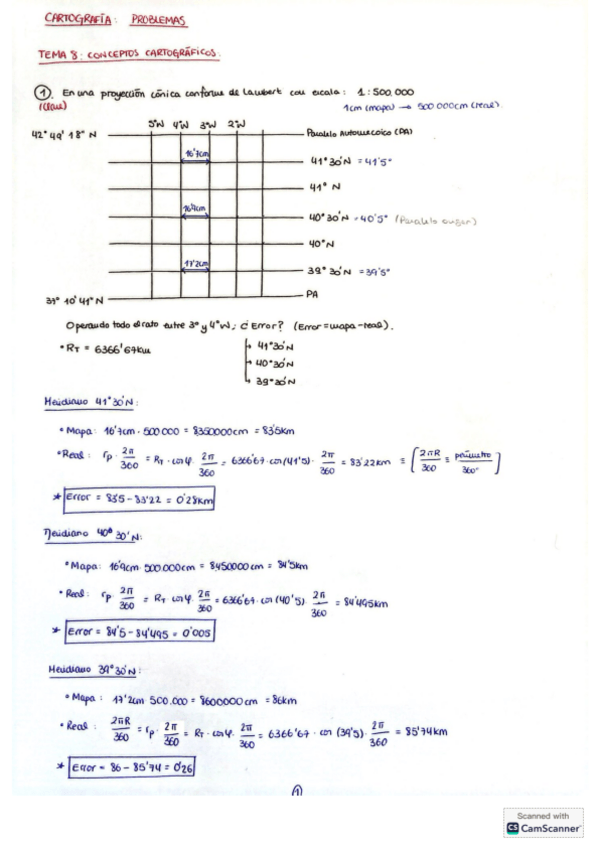 CARTOGRAFÍA: PROBLEMAS
TEMA 8: CONCEPTOS CARTOGRÁFICOS.
① En una proyección cónica conforme de Lambert con escala: 1:500.000
(clase) 1cm (mapa) → 500.000cm (real).
5°W 4°W 3°W 2°W
42° 49' 18" N Paralelo Automecoico (PA)
16'7cm 41° 30'N = 41'5°
41° N
16'9cm 40° 30'N = 40'5° (Paralelo origen)
40°N
17'2cm 39° 30'N = 39'5°
37° 10' 41" N PA
Operando todo el rato entre 3° y 4°W; ¿Error? (Error = mapa - real).
• RT = 6366'67km
→ 41°30'N
→ 40°30'N
→ 39°30'N
Meridiano 41°30'N:
• Mapa: 16'7cm · 500.000 = 8350000cm = 83'5km
• Real: rp · 2π/360 = RT · cosφ · 2π/360 = 6366'67 · cos(41'5) · 2π/360 = 83'22km ≡ [2πR/360 = perímetro/360°]
* Error = 83'5 - 83'22 = 0'28km
Meridiano 40° 30'N:
• Mapa: 16'9cm · 500.000cm = 8450000cm = 84'5km
• Real: rp · 2π/360 = RT cosφ · 2π/360 = 6366'67 · cos(40'5) · 2π/360 = 84'495km
* Error = 84'5 - 84'495 = 0'005
Meridiano 39°30'N:
• Mapa: 17'2cm 500.000 = 8600000cm = 86km
• Real: 2πR/360 = rp · 2π/360 = RT · cosφ · 2π/360 = 6366'67 · cos (39'5) · 2π/360 = 85'74km
* Error = 86 - 85'74 = 0'26
①
Scanned with
CS CamScanner